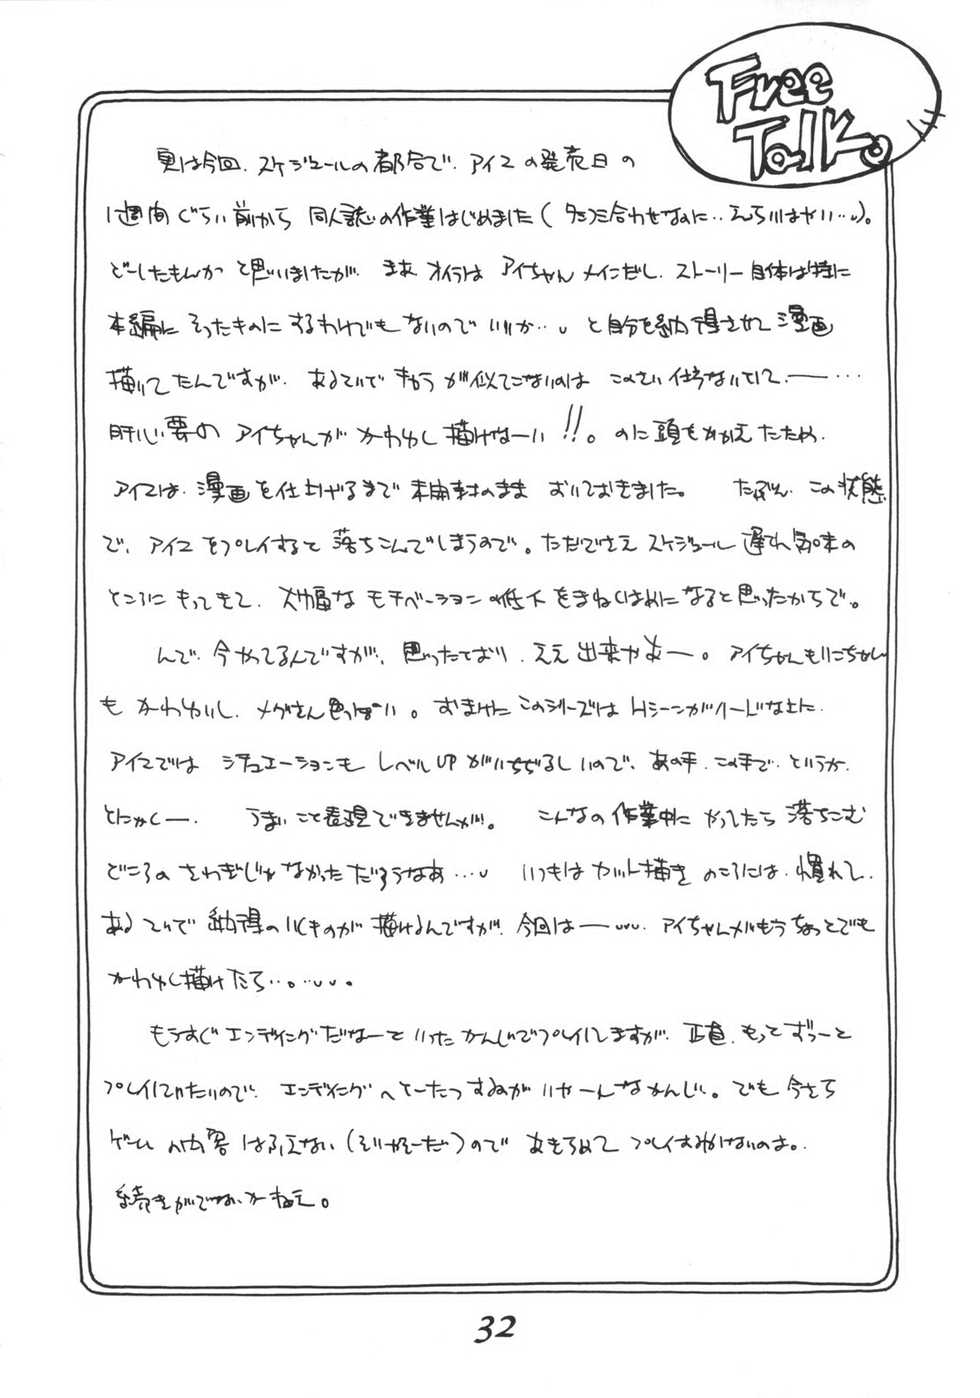 Free
Talk。
実は今回、スケジュールの都合で、アイ2の発売日の
1週間ぐらい前から 同人誌の作業はじめました(タシミ合わせなのに‥えらいはやい…)。
どーしたもんか と思いましたが、まあ オイラは アイちゃん メインだし、ストーリー自体は特に
本編に そったものに するわけでも ないので いいか… と自分を納得させて 漫画
描いてたんですが、あるていど きもうが似てこないのは このさい 仕方ないとして、――…
肝心要の アイちゃんが かわゆく描けなーい!!。のに頭をかかえたため、
アイ2は、漫画を仕上げるまで 未開封のまま おいておきました。 たぶん、この状態
で、アイ2をプレイすると 落ちこんでしまうので。ただでさえ スケジュール 遅れ気味の
ところに もってきて、大幅な モチベーションの低下 をまねくはめになると思ったからで。
んで、今やってるんですが、思ったとおり、ええ出来やよー。アイちゃんもりこちゃん
も かわゆいし、メグさん色っぽいい。おまけに このシリーズは HシーンがハードなHに、
アイ2では シチュエーションも レベルUPがいちぢるしいので、あの手、この手で、というか、
とにかくー、 うまいこと表現できませんが。 こんなの 作業中に やってたら 落ちこむ
どころの さわぎじゃ なかっただろうなあ… いつもは カット描き のころには、慣れて、
あるていど 納得のいくものが 描けるんですが、今回は――、アイちゃんがもうちょっとでも
かわゆく描けたら…。…。
もうすぐエンディングだなーと いった かんじでプレイしてますが、正直、もっと ずっーと
プレイしていたいので、エンディングへとーたつするのが いやーんなかんじ。でも 今さら
ゲームの内容 はふえない(そりゃそーだ)ので あきらめて プレイするしかないのよ。
続きがでないかねえ。
32